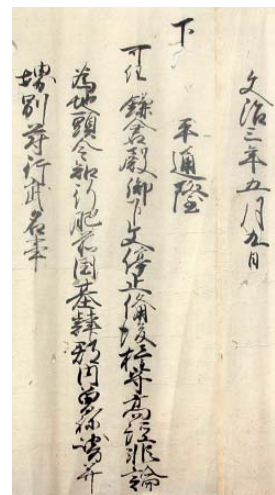 文治三年五月九日
下 平通隆
可任 鎌倉殿御下文停止備後権守高経非論
為地頭令知行肥前国基肄郡内曽祢崎并
堺別符行武名事